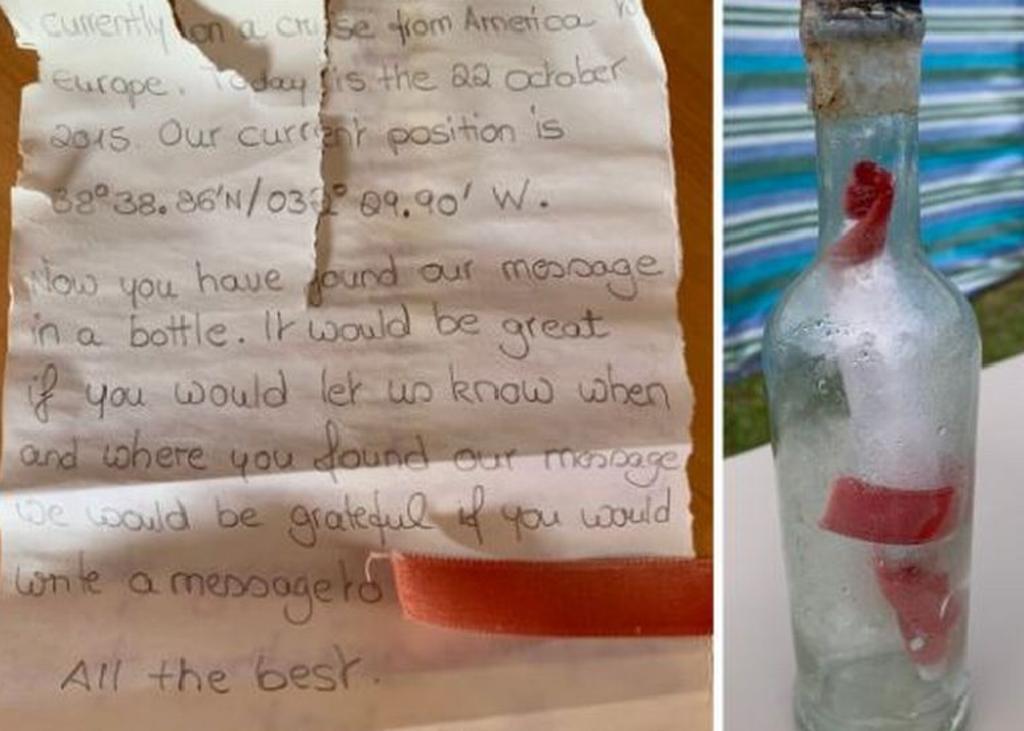 currently on a cruise from America
Europe. Today is the 22 october
2015. Our current position is
38°38.86'N/032° 29.90' W.
Now you have found our message
in a bottle. It would be great
if you would let us know when
and where you found our message
we would be grateful if you would
write a message to
All the best.